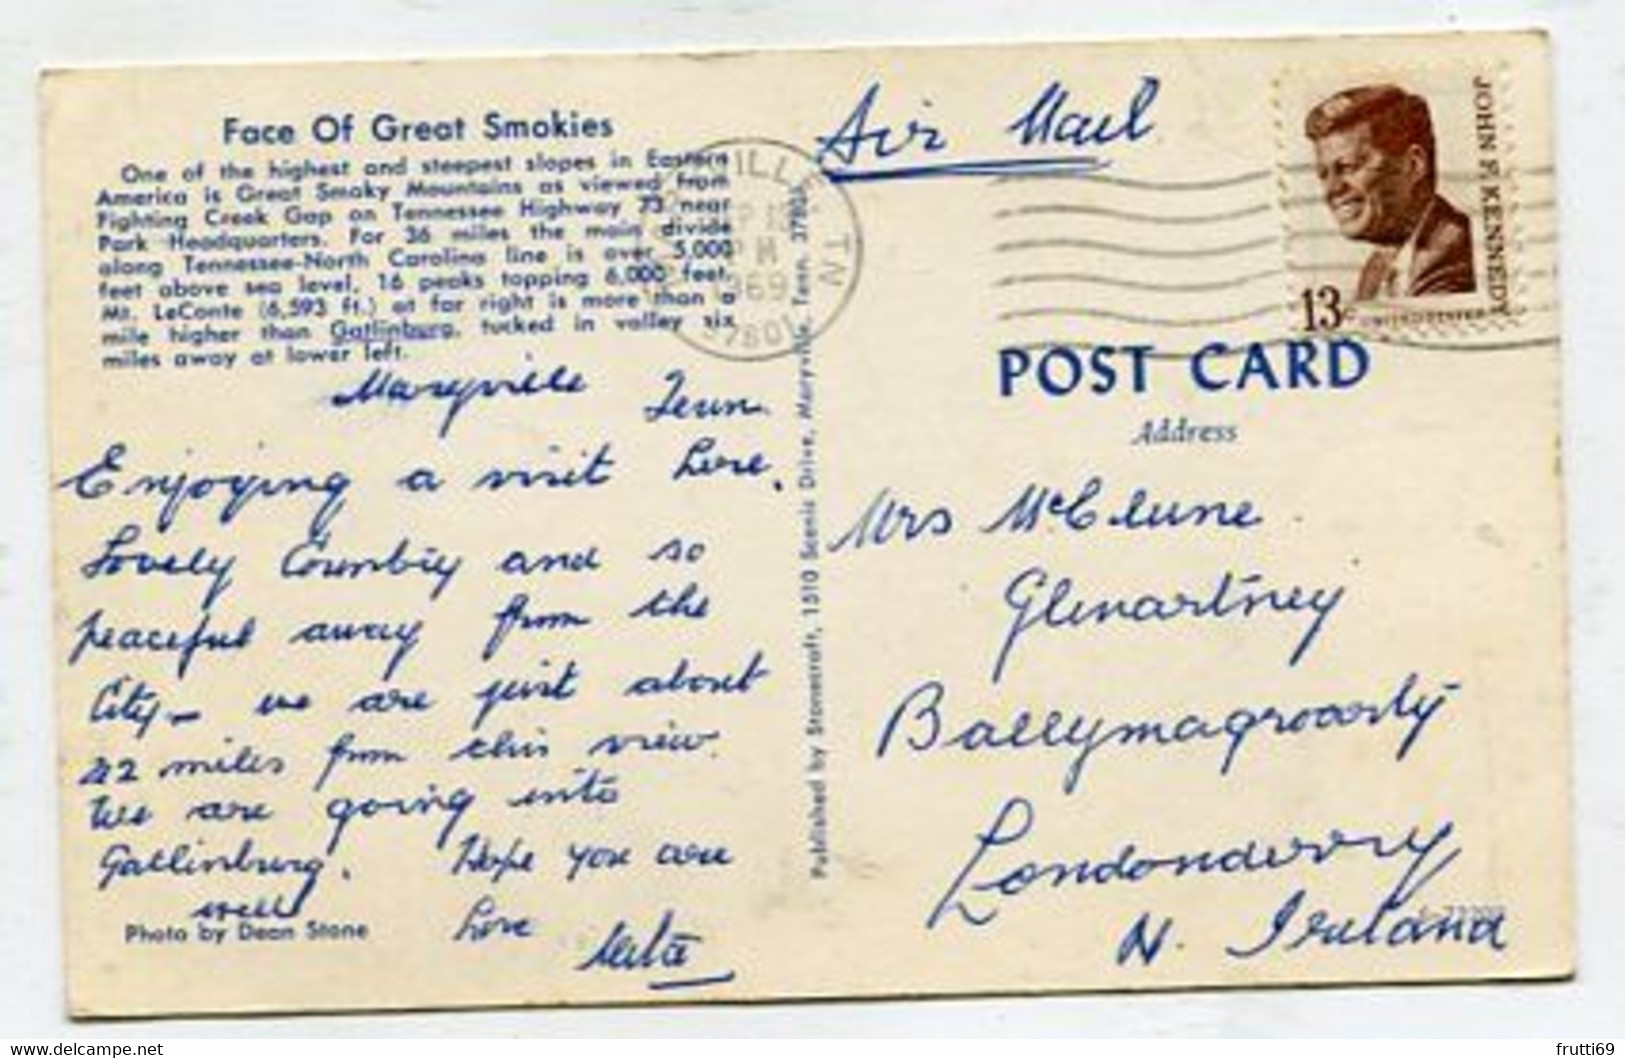 Face Of Great Smokies
One of the highest and steepest slopes in Eastern
America is Great Smoky Mountains as viewed from
Fighting Creek Gap on Tennessee Highway 73 near
Park Headquarters. For 36 miles the main divide
along Tennessee-North Carolina line is over 5,000
feet above sea level, 16 peaks topping 6,000 feet.
Mt. LeConte (6,593 ft.) at far right is more than a
mile higher than Gatlinburg, tucked in valley six
miles away at lower left.
Maryville Tenn.
Enjoying a visit here.
Lovely Country and so
peaceful away from the
City - we are just about
22 miles from this view.
We are going into
Gatlinburg. Hope you are
well
Photo by Dean Stone
Love
Published by Stonecraft, 1510 Scenic Drive, Maryville, Tenn. 37801
VILLE TN
PM
1969
37801
Air Mail
JOHN F. KENNEDY
13c UNITED STATES
POST CARD
Address
Mrs McClune
Glenartney
Ballymagroarty
Londonderry
N. Ireland
frutti69